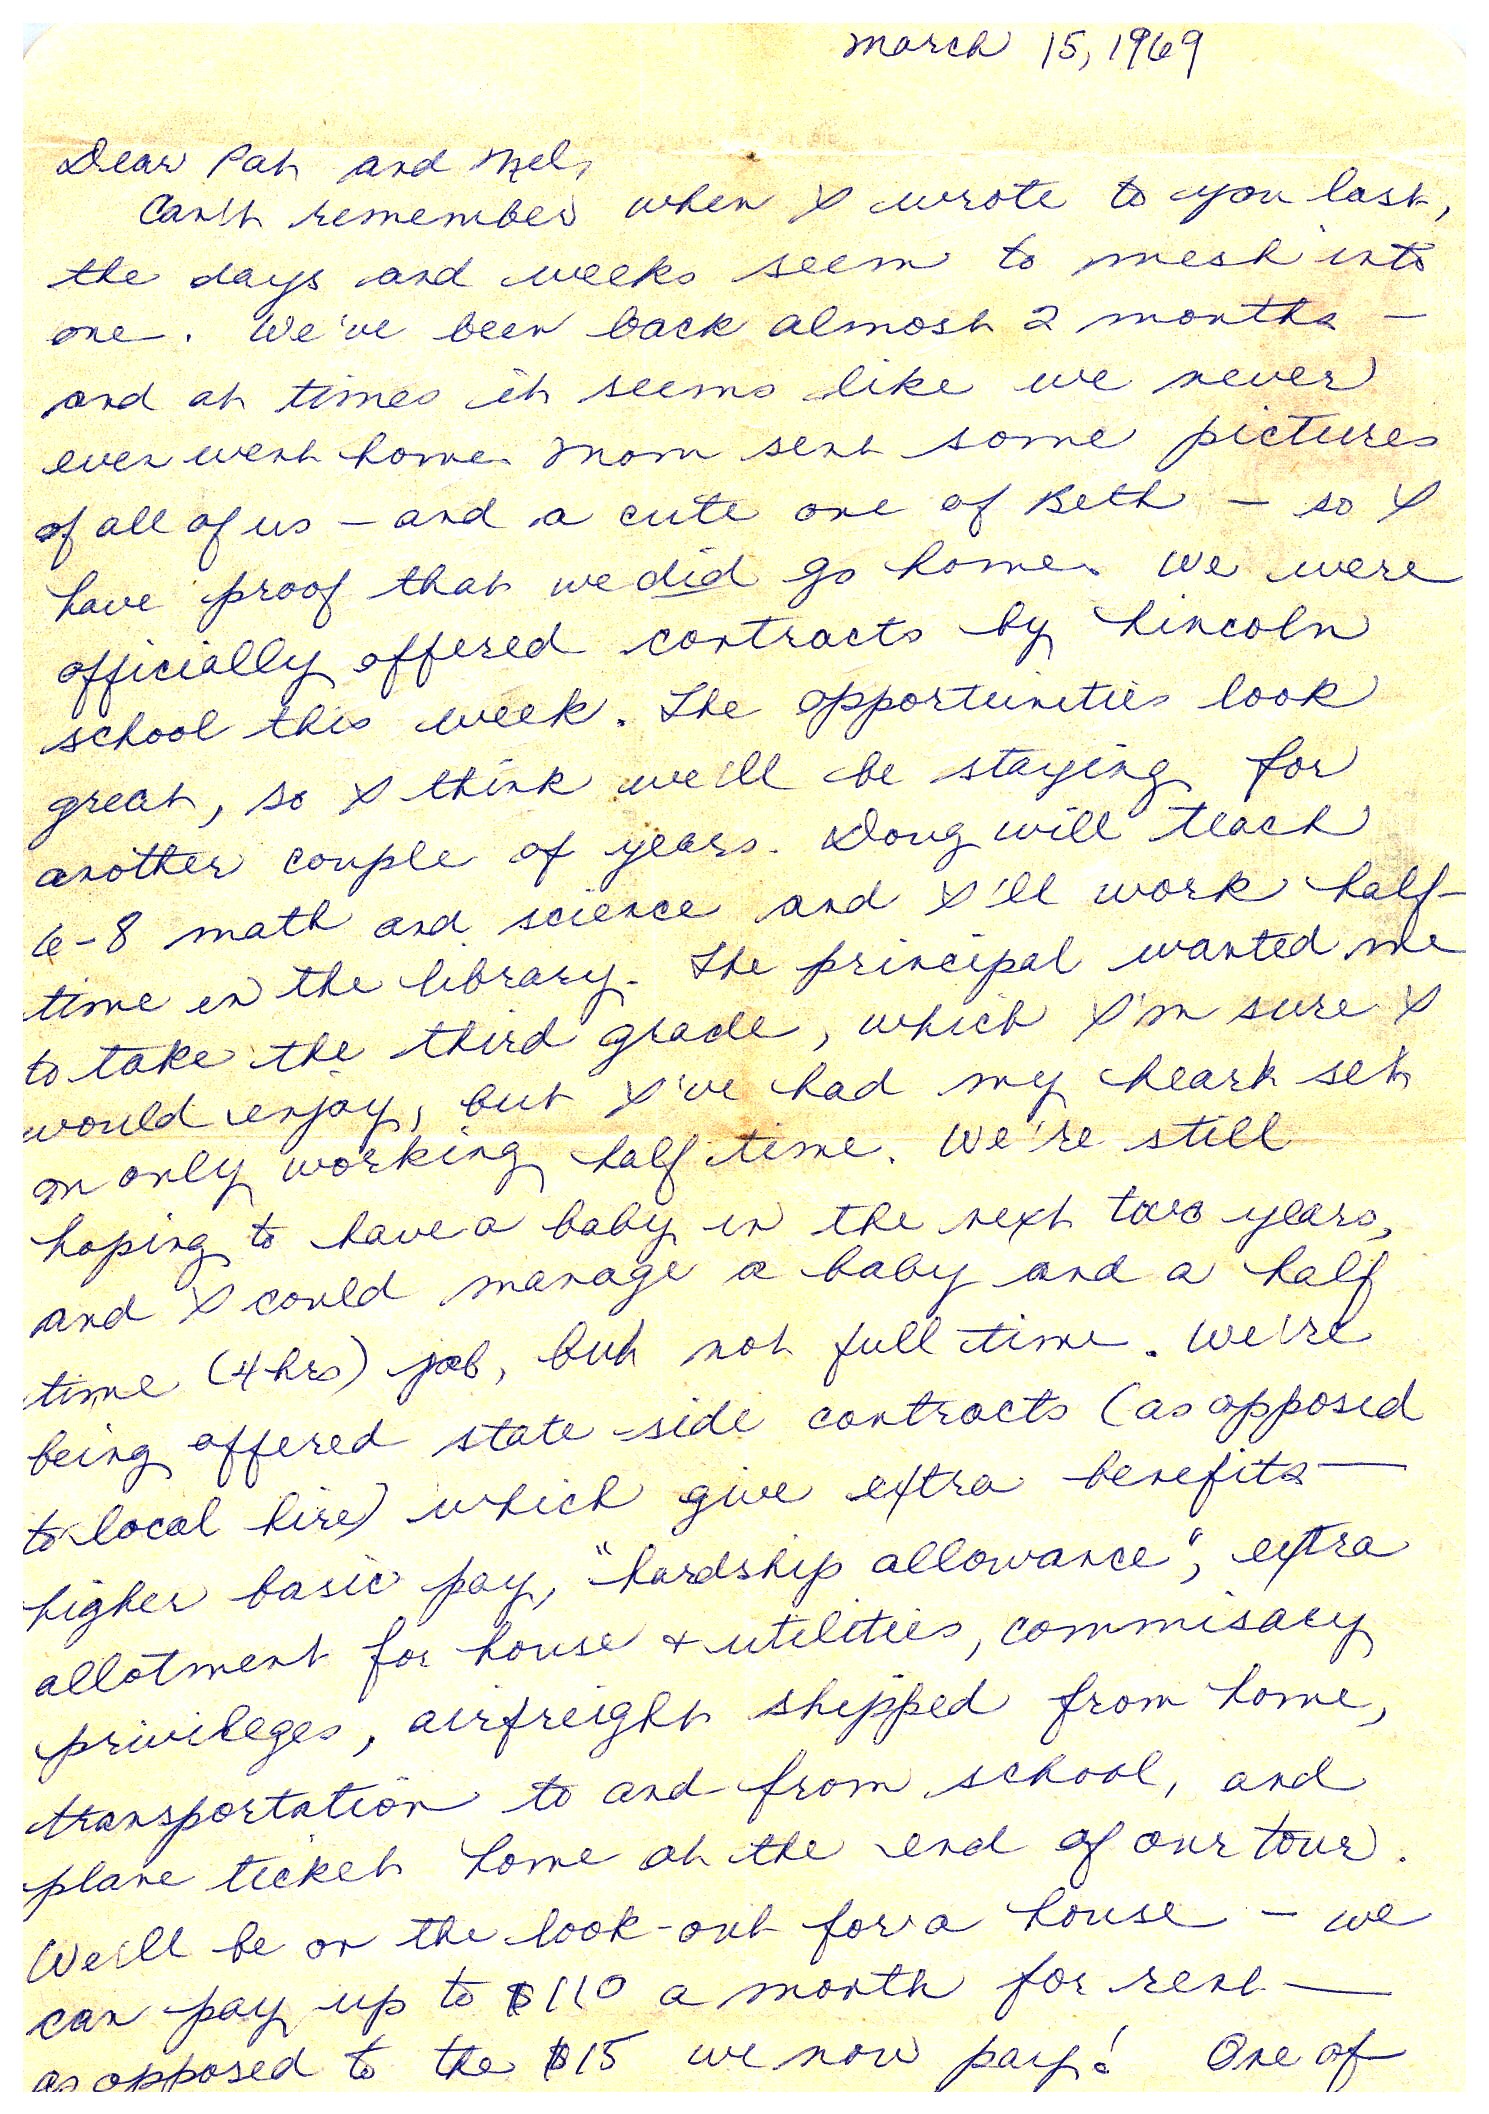 March 15, 1969
Dear Pat and Mel,
Can't remember when I wrote to you last,
the days and weeks seem to mesh into
one. We've been back almost 2 months —
and at times it seems like we never
even went home. Mom sent some pictures
of all of us — and a cute one of Beth — so I
have proof that we did go home. We were
officially offered contracts by Lincoln
school this week. The opportunities look
great, so I think we'll be staying for
another couple of years. Doug will teach
6-8 math and science and I'll work half-
time in the library. The principal wanted me
to take the third grade, which I'm sure I
would enjoy, but I've had my heart set
on only working half time. We're still
hoping to have a baby in the next two years,
and I could manage a baby and a half
time (4 hrs) job, but not full time. We're
being offered state-side contracts (as opposed
to local hire) which give extra benefits —
higher basic pay, "hardship allowance", extra
allotment for house + utilities, commisacy
privileges, airfreight shipped from home,
transportation to and from school, and
plane ticket home at the end of our tour.
We'll be on the look-out for a house — we
can pay up to $110 a month for rent —
as opposed to the $15 we now pay! One of